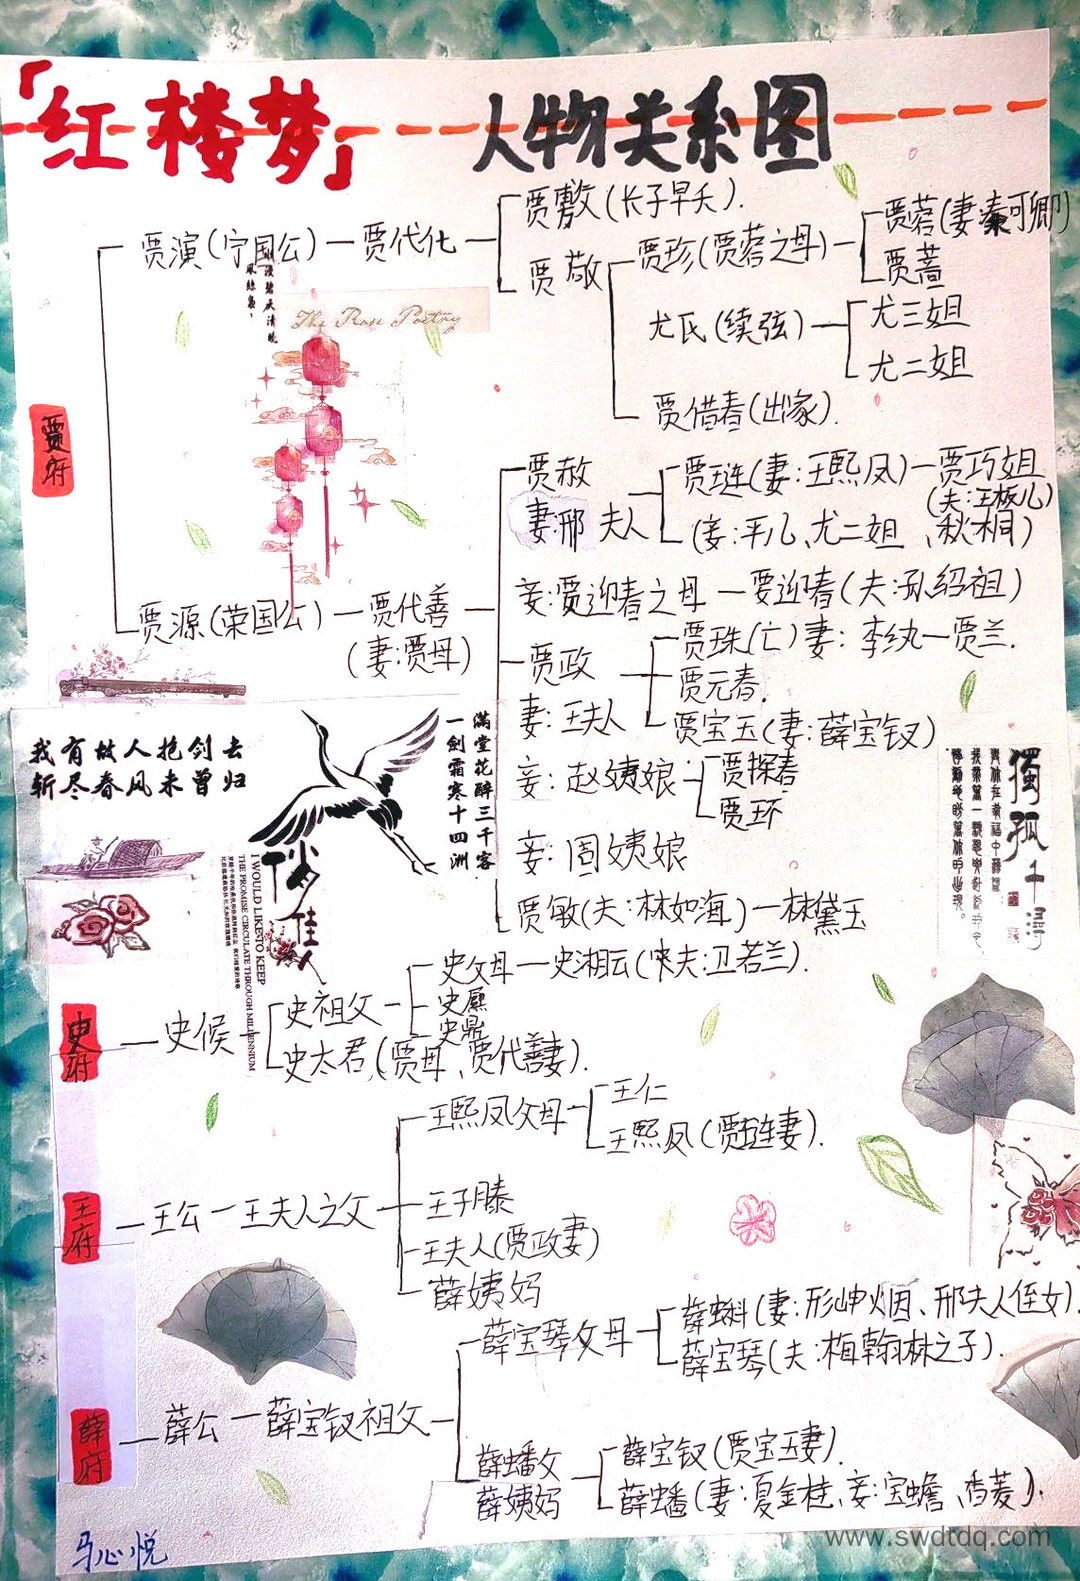 「红楼梦」 人物关系图
贾府
贾演(宁国公)
贾代化
贾敷(长子早夭).
贾敬
贾珍(贾蓉之母)
贾蓉(妻:秦可卿)
贾蔷
尤氏(续弦)
尤三姐
尤二姐
贾借春(出家).
The Rose Poetry
贾源(荣国公)
贾代善
(妻:贾母)
贾赦
妻:邢夫人
贾琏(妻:王熙凤)
贾巧姐
(夫:王板儿)
(妾:平儿、尤二姐、秋桐)
妾:贾迎春之母
要迎春(夫:孙绍祖)
贾政
妻:王夫人
贾珠(亡)妻:李纨
贾兰.
贾元春.
贾宝玉(妻:薛宝钗)
妾:赵姨娘
贾探春
贾环
妾:周姨娘
贾敏(夫:林如海)
林黛玉
我有故人抱剑去
斩尽春风未曾归
满堂花醉三千客
一剑霜寒十四洲
I WOULD LIKE TO KEEP
THE PROMISE CIRCULATE THROUGH MILLENNIUM
佳人
独孤
史府
史候
史祖父
史父母
史湘云(未夫:卫若兰).
史鼐
史鼎
史太君(贾母、贾代善妻).
王府
王公
王夫人之父
王熙凤父母
王仁
王熙凤(贾琏妻).
王子腾
王夫人(贾政妻)
薛姨妈
薛府
薛公
薛宝钗祖父
薛宝琴父母
薛蝌(妻:形岫烟、邢夫人侄女).
薛宝琴(夫:梅翰林之子).
薛蟠父
薛姨妈
薛宝钗(贾宝玉妻).
薛蟠(妻:夏金桂、妾:宝蟾、香菱).
马心悦
www.swdtdq.com